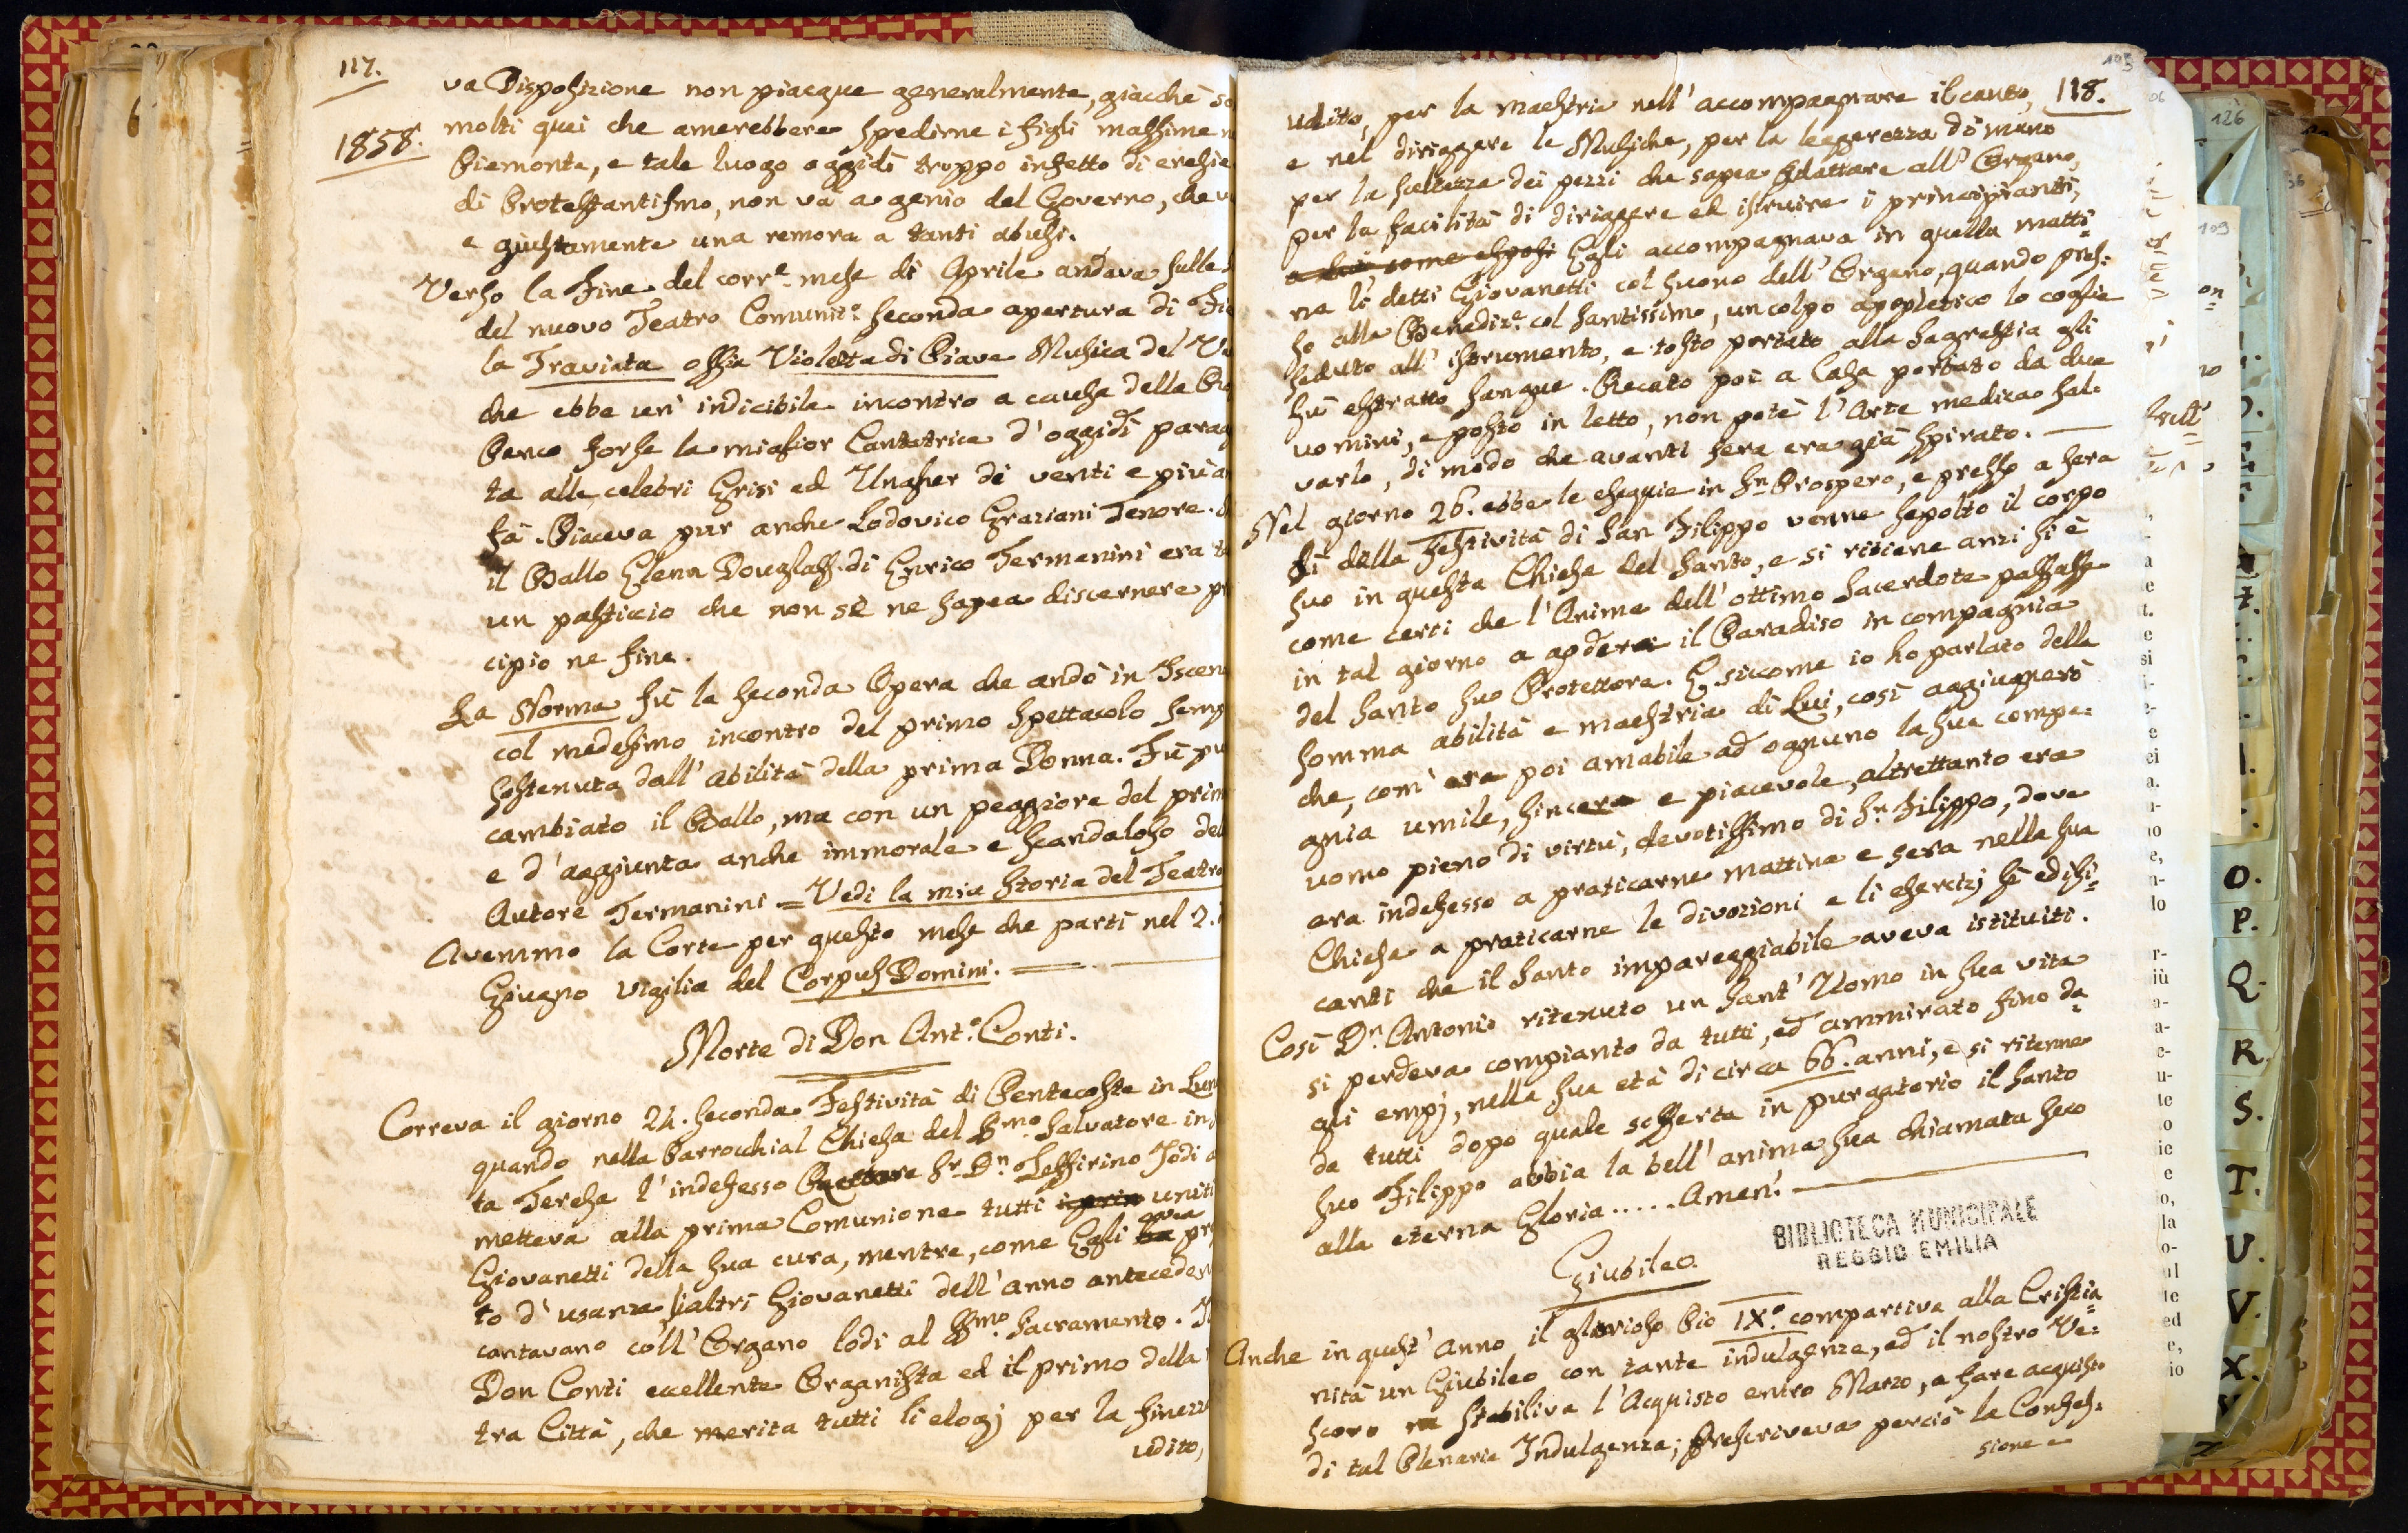 117.
1858.
va Disposizione non piacque generalmente, giacchè so
molti quei che amerebbere spedirne i figli massime n
Piemonte, e tale luogo oggidì troppo infetto di eresie
di Protestantismo, non và a genio del Governo, che
e giustamente una remora a tanti abusi.
Verso la Fine del corr.e mese di Aprile andava sulle
del nuovo Teatro Comunit.o seconda apertura di Fie
la Traviata ossia Violetta di Piave Musica del Ve
che ebbe un' indicibile incontro a causa della
Penco forse la miglior Cantatrice d'oggidì parag
ta alle celebri Grisi ed Ungher di venti e più a
fà. Piaceva pur anche Lodovico Graziani Tenore.
il Ballo Elena Douglass di Enrico Termanini era
un pasticcio che non sè ne sapea discernere pr
cipio ne fine.
La Norma fù la seconda Opera che andò in Iscen
col medesimo incontro del primo spettacolo semp
sostenuta dall'abilità della prima Donna. Fù pu
cambiato il Ballo, ma con un peggiore del prim
e d'aggiunta anche immorale e scandaloso del
Autore Termanini = Vedi la mia storia del Teatro
Avemmo la Corte per questo mese che partì nel 2.
Giugno vigilia del Corpus Domini.
Morte di Don Ant.o Conti.
Correva il giorno 24. seconda Festività di Pentecoste in Lun
quando nella Parrocchial Chiesa del S.mo Salvatore in
ta Teresa l'indefesso Rettore S.r D.n Zeffirino Jodi a
metteva alla prima Comunione tutti i prim uniti
Giovanetti della sua cura, mentre, come Egli ha avea pre
to d'usanza, li altri Giovanetti dell'anno anteceden
cantavano coll'Organo lodi al SS.mo Sacramento. Il
Don Conti eccellente Organista ed il primo della
tra Città, che merita tutti li elogj per la finezz
udito,
105
118.
udito, per la maestria nell'accompagnare il canto,
e nel diriggere le Musiche, per la leggerezza di mano
per la scelterza dei pezzi che sapea adattare all'Organo,
per la facilità di diriggere ed istruire i principianti,
a lui come esposi Egli accompagnava in quella matti=
na li detti Giovanetti col suono dell'Organo, quando pres=
so alla Benediz.e col santissimo, un colpo apopletico lo coglie
seduto all'istrumento, e tosto portato alla Sagrestia gli
fù estratto sangue. Recato poi a Casa portato da due
uomini, e posto in letto, non potè l'Arte medica sal=
varlo, di modo che avanti sera era già spirato.
Nel giorno 26. ebbe le esequie in S.n Prospero, e presso a sera
dì della Festività di San Filippo venne sepolto il corpo
suo in questa Chiesa del Santo, e si ritiene anzi si è
come certi che l'Anima dell'ottimo Sacerdote passasse
in tal giorno a godere il Paradiso in compagnia
del Santo suo Protettore. E siccome io ho parlato della
somma abilità e maestria di Lui, così aggiugnerò
che, com' era poi amabile ad ognuno la sua compa=
gnia umile, sincera e piacevole, altrettanto era
uomo pieno di virtù, devotissimo di S.n Filippo, dove
era indefesso a praticarne mattina e sera nella sua
Chiesa a praticarne le divozioni e li esercizj sì edifi=
canti che il Santo impareggiabile aveva istituiti.
Così D.n Antonio ritenuto un Sant'Uomo in sua vita
si perdeva compianto da tutti, ed ammirato fino da=
gli empj, nella sua età di circa 66. anni, e si ritenne
da tutti dopo quale sofferta in purgatorio il Santo
suo Filippo abbia la bell'anima sua chiamata seco
alla eterna Gloria.....Amen!
BIBLIOTECA MUNICIPALE
REGGIO EMILIA
Giubileo.
Anche in quest'anno il glorioso Pio IX.o compartiva alla Cristia=
nità un Giubileo con tante indulgenze, ed il nostro Ve=
scovo ne stabiliva l'Acquisto entro Marzo, a fare acquisto
di tal Plenaria Indulgenza; prescriveva perciò la Confes=
sione e
126
109
O.
P.
Q.
R.
S.
T.
U.
V.
X.
Z